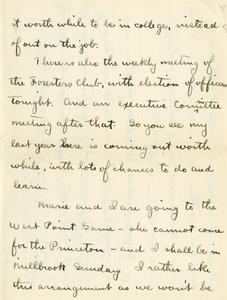 it worth while to be in college, instead of
of out on the job.
There is also the weekly meeting of
the Foresters Club, with election of officers
tonight. And an executive Comittee
meeting after that. So you see my
last year here is coming out worth
while, with lots of chances to do and
learn.
Marie and I are going to the
West Point Game - she cannot come
for the Princeton - and I shall be in
Millbrook Sunday. I rather like
this arrangement as we won't be